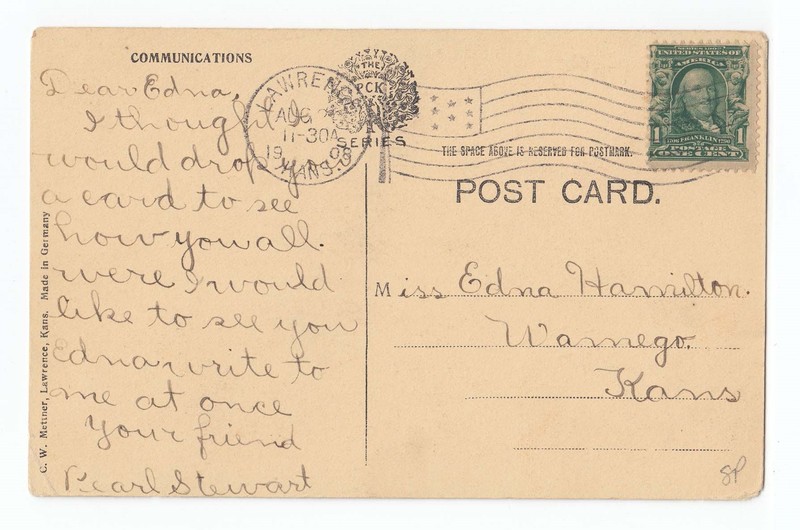 COMMUNICATIONS
Dear Edna,
I thought I
would drop you
a card to see
how you all.
were I would
like to see you
Edna write to
me at once
your friend
Pearl Stewart
C. W. Mettner, Lawrence, Kans. Made in Germany
LAWRENCE
AUG
11-30A
1908
KANS.
THE
PCK
SERIES
THE SPACE ABOVE IS RESERVED FOR POSTMARK.
POST CARD.
SERIES 1902
UNITED STATES OF
AMERICA
1706 FRANKLIN 1790
1 POSTAGE 1
ONE CENT
Miss Edna Hamilton.
Wamego.
Kans
SP